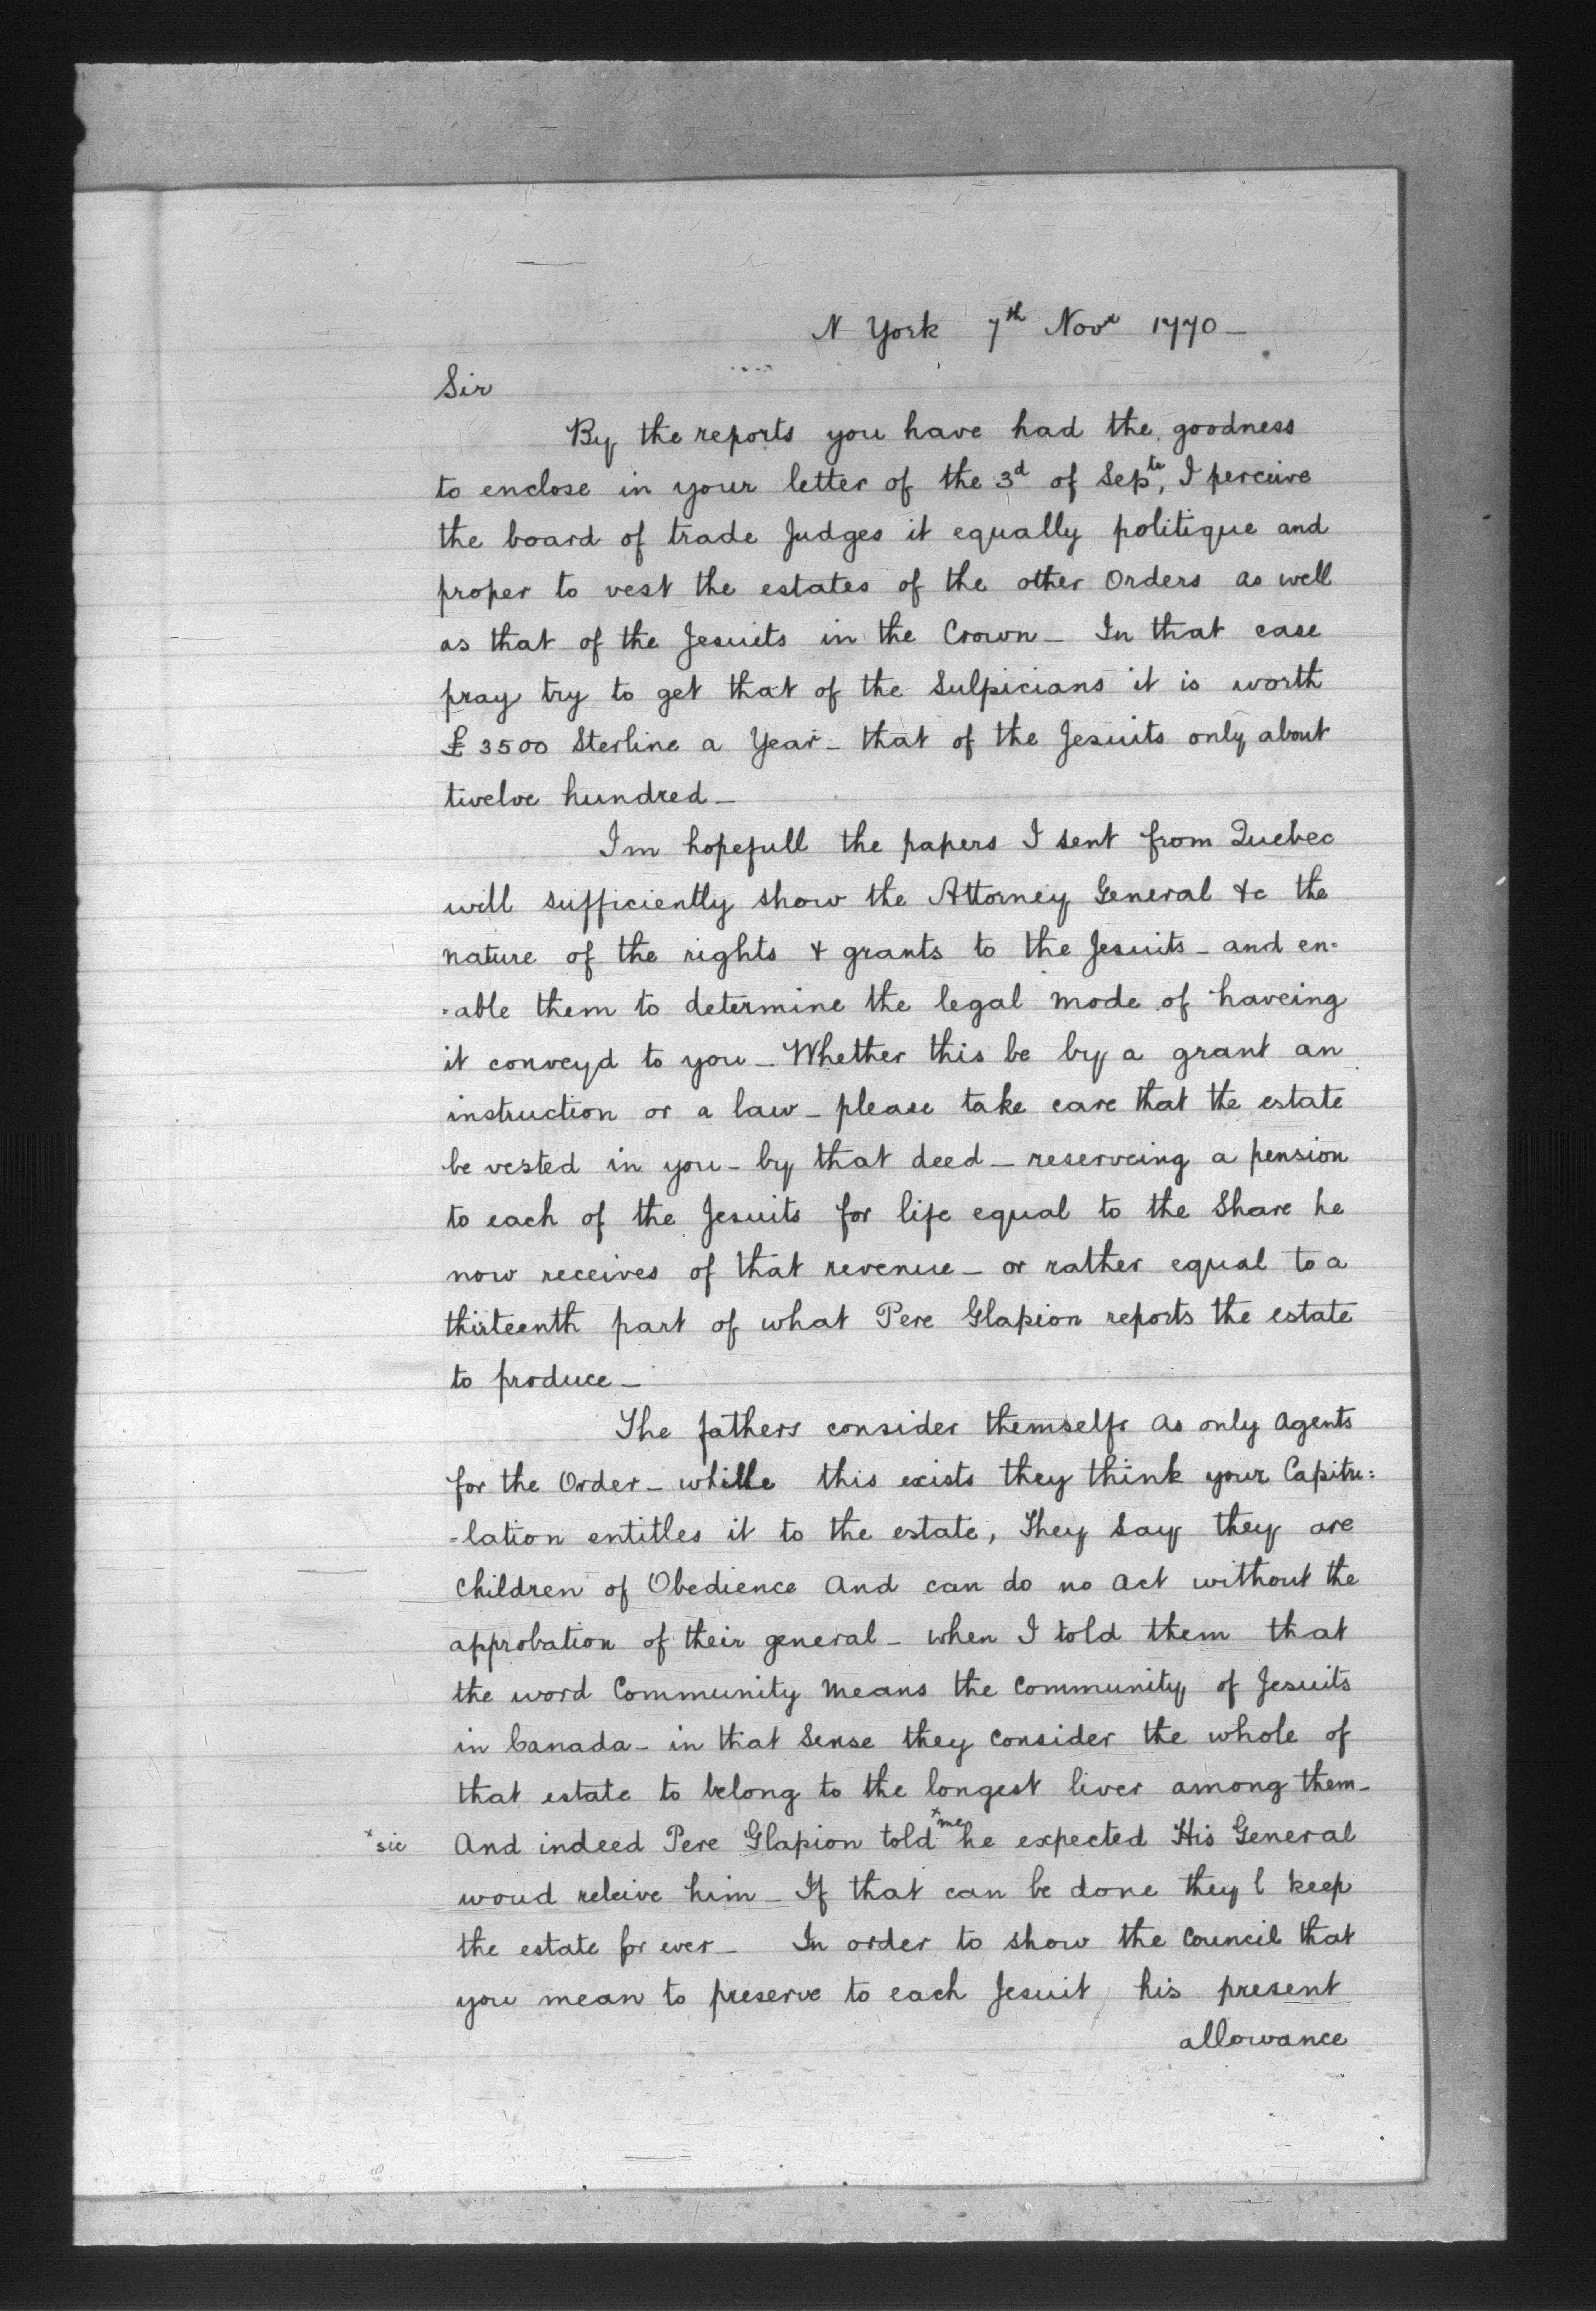 N York 7th Novr 1770 —
Sir
By the reports you have had the goodness
to enclose in your letter of the 3d of Septr, I perceive
the board of trade Judges it equally politique and
proper to vest the estates of the other Orders as well
as that of the Jesuits in the Crown — In that case
pray try to get that of the Sulpicians it is worth
£3500 Sterline a Year — that of the Jesuits only about
twelve hundred —
Im hopefull the papers I sent from Quebec
will sufficiently show the Attorney General &c the
nature of the rights & grants to the Jesuits — and en=
=able them to determine the legal mode of haveing
it conveyd to you — Whether this be by a grant an
instruction or a law — please take care that the estate
be vested in you — by that deed — reserveing a pension
to each of the Jesuits for life equal to the Share he
now receives of that revenue — or rather equal to a
thirteenth part of what Pere Glapion reports the estate
to produce —
The fathers consider themselfs as only agents
for the Order — while this exists they think your Capitu=
=lation entitles it to the estate, They Say they are
Children of Obedience And can do no act without the
approbation of their general — when I told them that
the word Community Means the Community of Jesuits
in Canada — in that Sense they Consider the whole of
that estate to belong to the longest liver among them —
x sic And indeed Pere Glapion told x me he expected His General
woud releive him — If that can be done they l keep
the estate for ever — In order to show the Council that
you mean to preserve to each Jesuit, his present
allowance